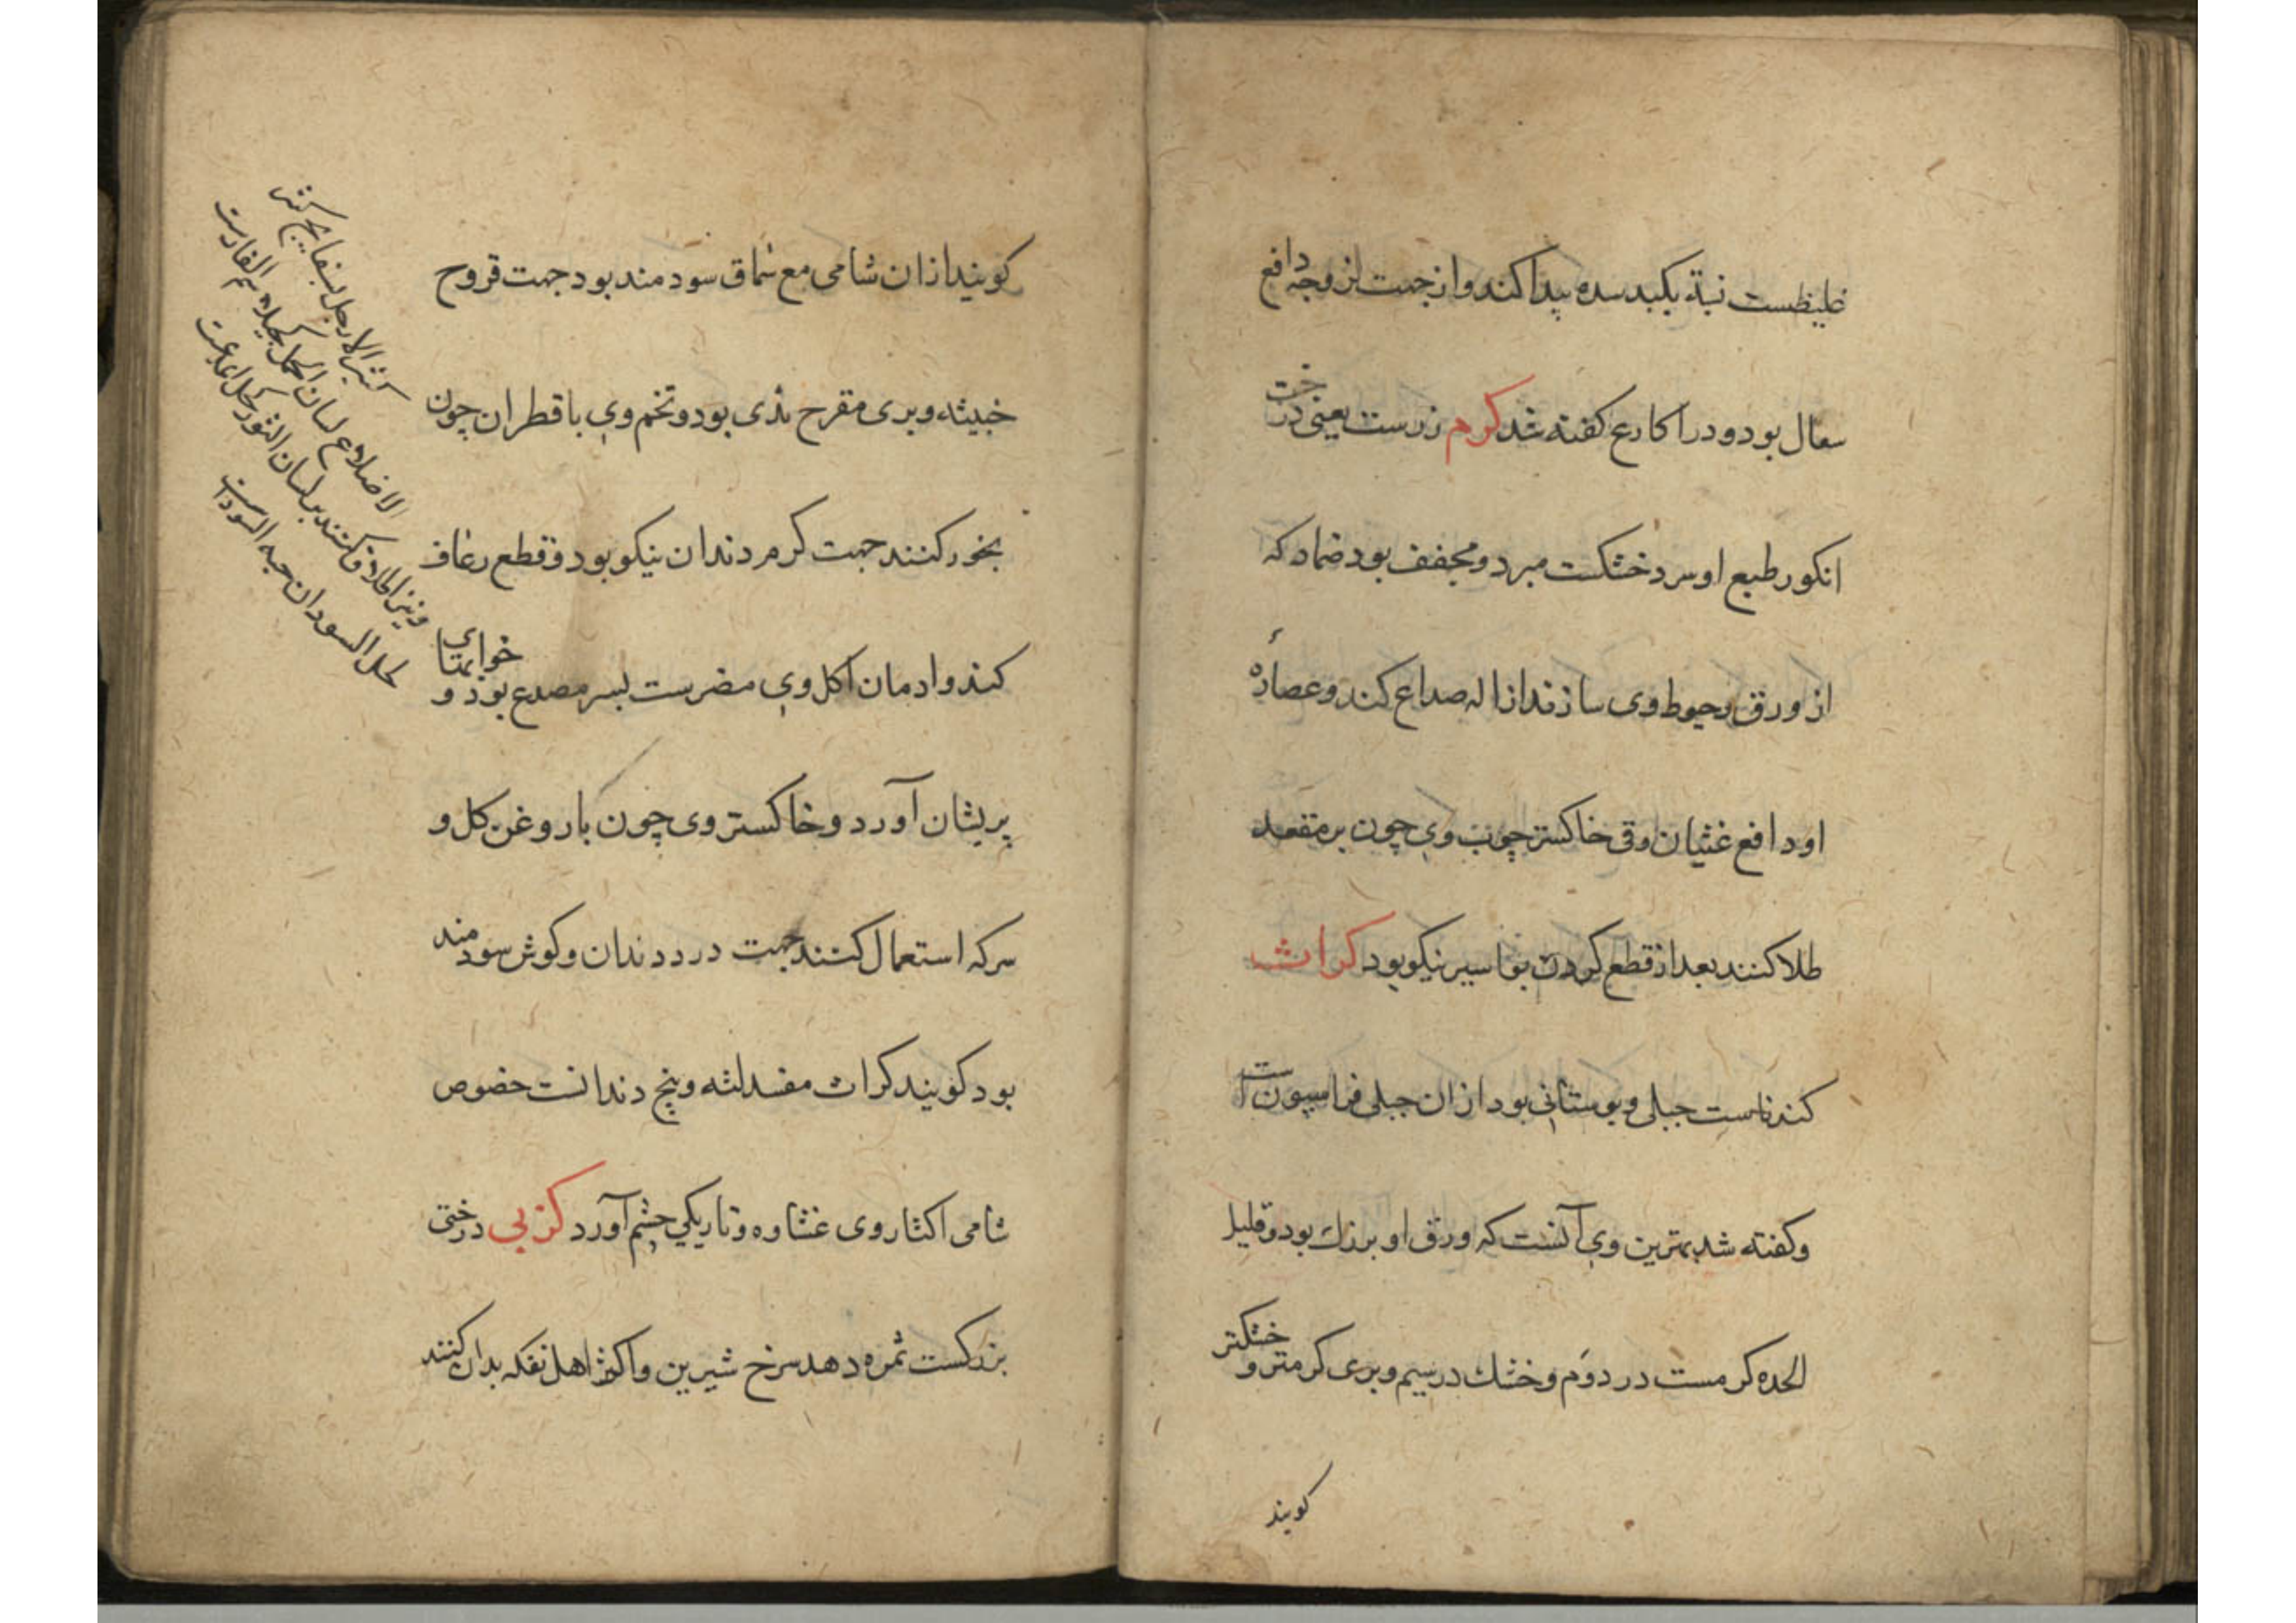 غلیظست نسبة بکبد سده پیدا کند و از جهت لزوجه دافع
سعال بود و در اکارع کفته شد کرم زرست یعنی درخت
انکور طبع او سرد خشکست مبرد و مجفف بود ضماد که
از ورق و خیوط وی سازند ازاله صداع کند و عصارهٔ
او دافع غثیان و قی خاکستر چوب وی چون بر مقعد
طلا کنند بعد از قطع کردن بواسیر نیکو بود کراث
کندناست جبلی و بوستانی بود از ان جبلی فراسیونست
و کفته شد بهترین وی آنست که ورق او بزرك بود و قلیل
الحده کرمست در دوم و خشك در سیم و بری کرمتر و خشکتر
کویند
کویند از ان شامی مع سماق سودمند بود جهت قروح
خبیثه و بری مقرح ثدی بود و تخم وی با قطران چون
بخور کنند جهت کرم دندان نیکو بود و قطع رعاف
کند و ادمان اکل وی مضرست بسر مصدع بود و خوابهای
پریشان آورد و خاکستر وی چون با روغن کل و
سرکه استعمال کنند جهت درد دندان و کوش سودمند
بود کویند کراث مفسد لثه و بیخ دندانست خصوص
شامی اکثار وی غشاوه و تاریکی چشم آورد کزبی درختی
بزرکست ثمره دهد سرخ شیرین و اکثر اهل تفکه بدان کنند
کثیر الارجل بسفایج
الاضلاع لسان الحمل کحیلا سم الفارست
و نیز اطلاق کنند بر لسان الثور کحل
کحل السودان حبه السوداست